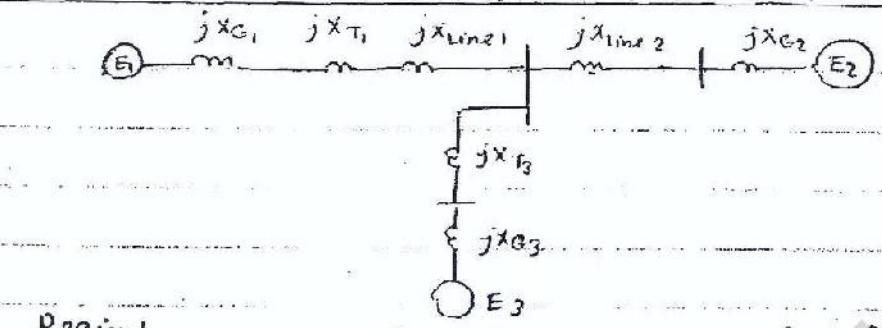 jXG1 jXT1 jXLine1 jXLine2 jXG2
E1 E2
jXT3
jXG3
E3